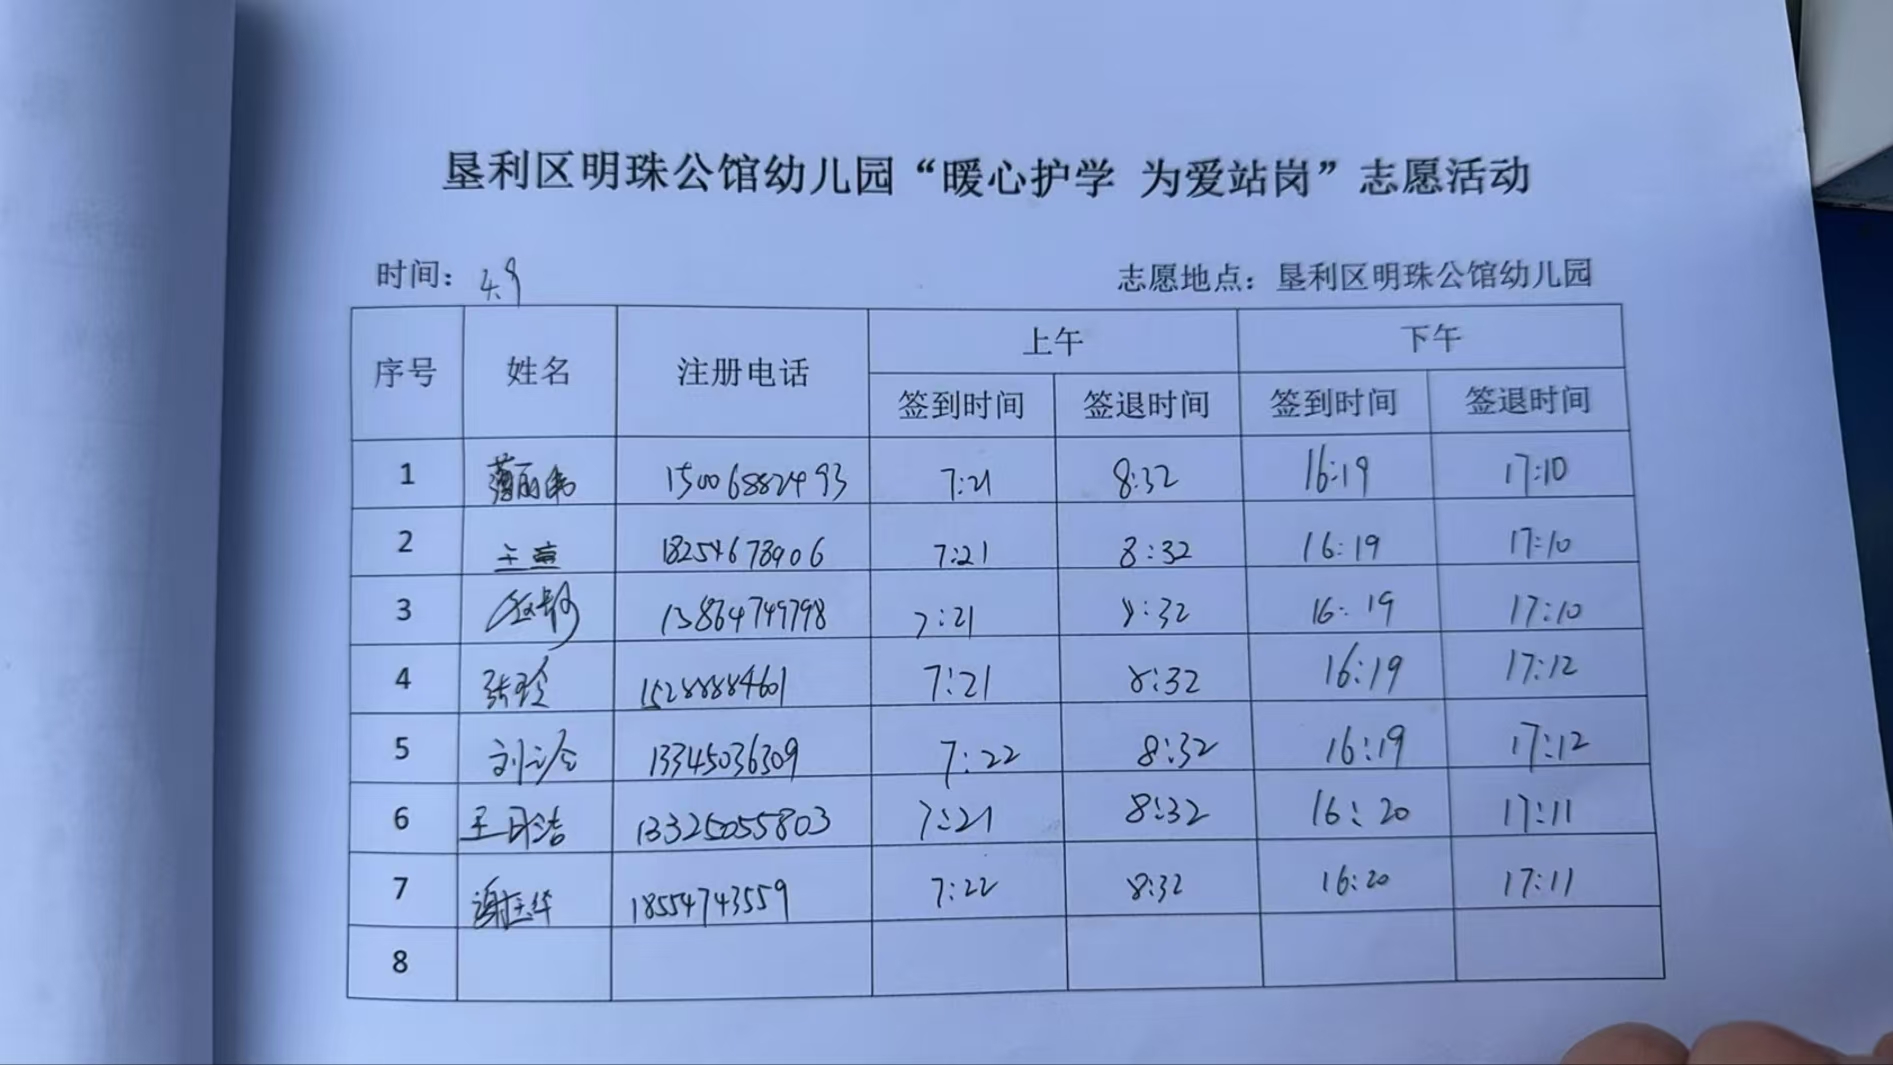 垦利区明珠公馆幼儿园“暖心护学 为爱站岗”志愿活动
时间：4.9 志愿地点：垦利区明珠公馆幼儿园
序号 姓名 注册电话 上午 下午
签到时间 签退时间 签到时间 签退时间
1 15006882493 7:21 8:32 16:19 17:10
2 18254678906 7:21 8:32 16:19 17:10
3 13864749798 7:21 8:32 16:19 17:10
4 张玲 15288884601 7:21 8:32 16:19 17:12
5 13345036309 7:22 8:32 16:19 17:12
6 13325055803 7:21 8:32 16:20 17:11
7 谢玉华 18554743559 7:22 8:32 16:20 17:11
8